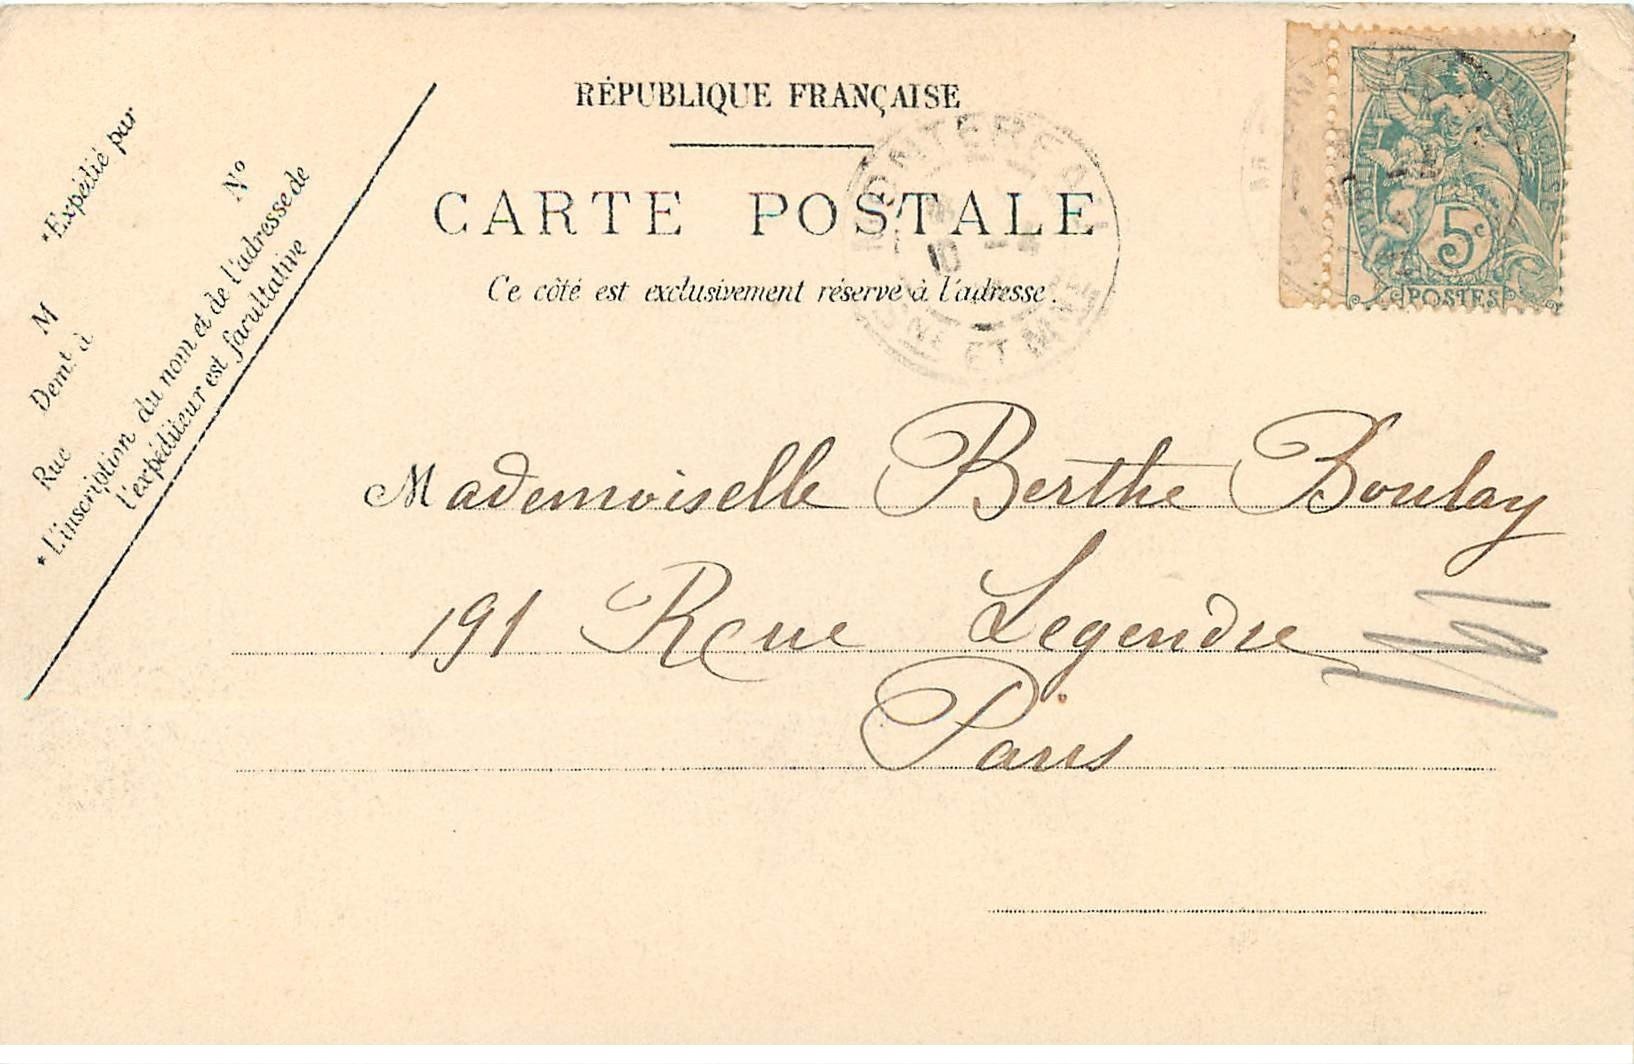 RÉPUBLIQUE FRANÇAISE
CARTE POSTALE
Ce côté est exclusivement réservé à l'adresse.
*Expédié par
M
Demt à
Rue
N°
* L'inscription du nom et de l'adresse de
l'expéditeur est facultative
MONTEREAU
10
SEINE ET MARNE
RÉPUBLIQUE FRANÇAISE
5c
POSTES
Mademoiselle Berthe Boulay
191 Rue Legendre
Paris